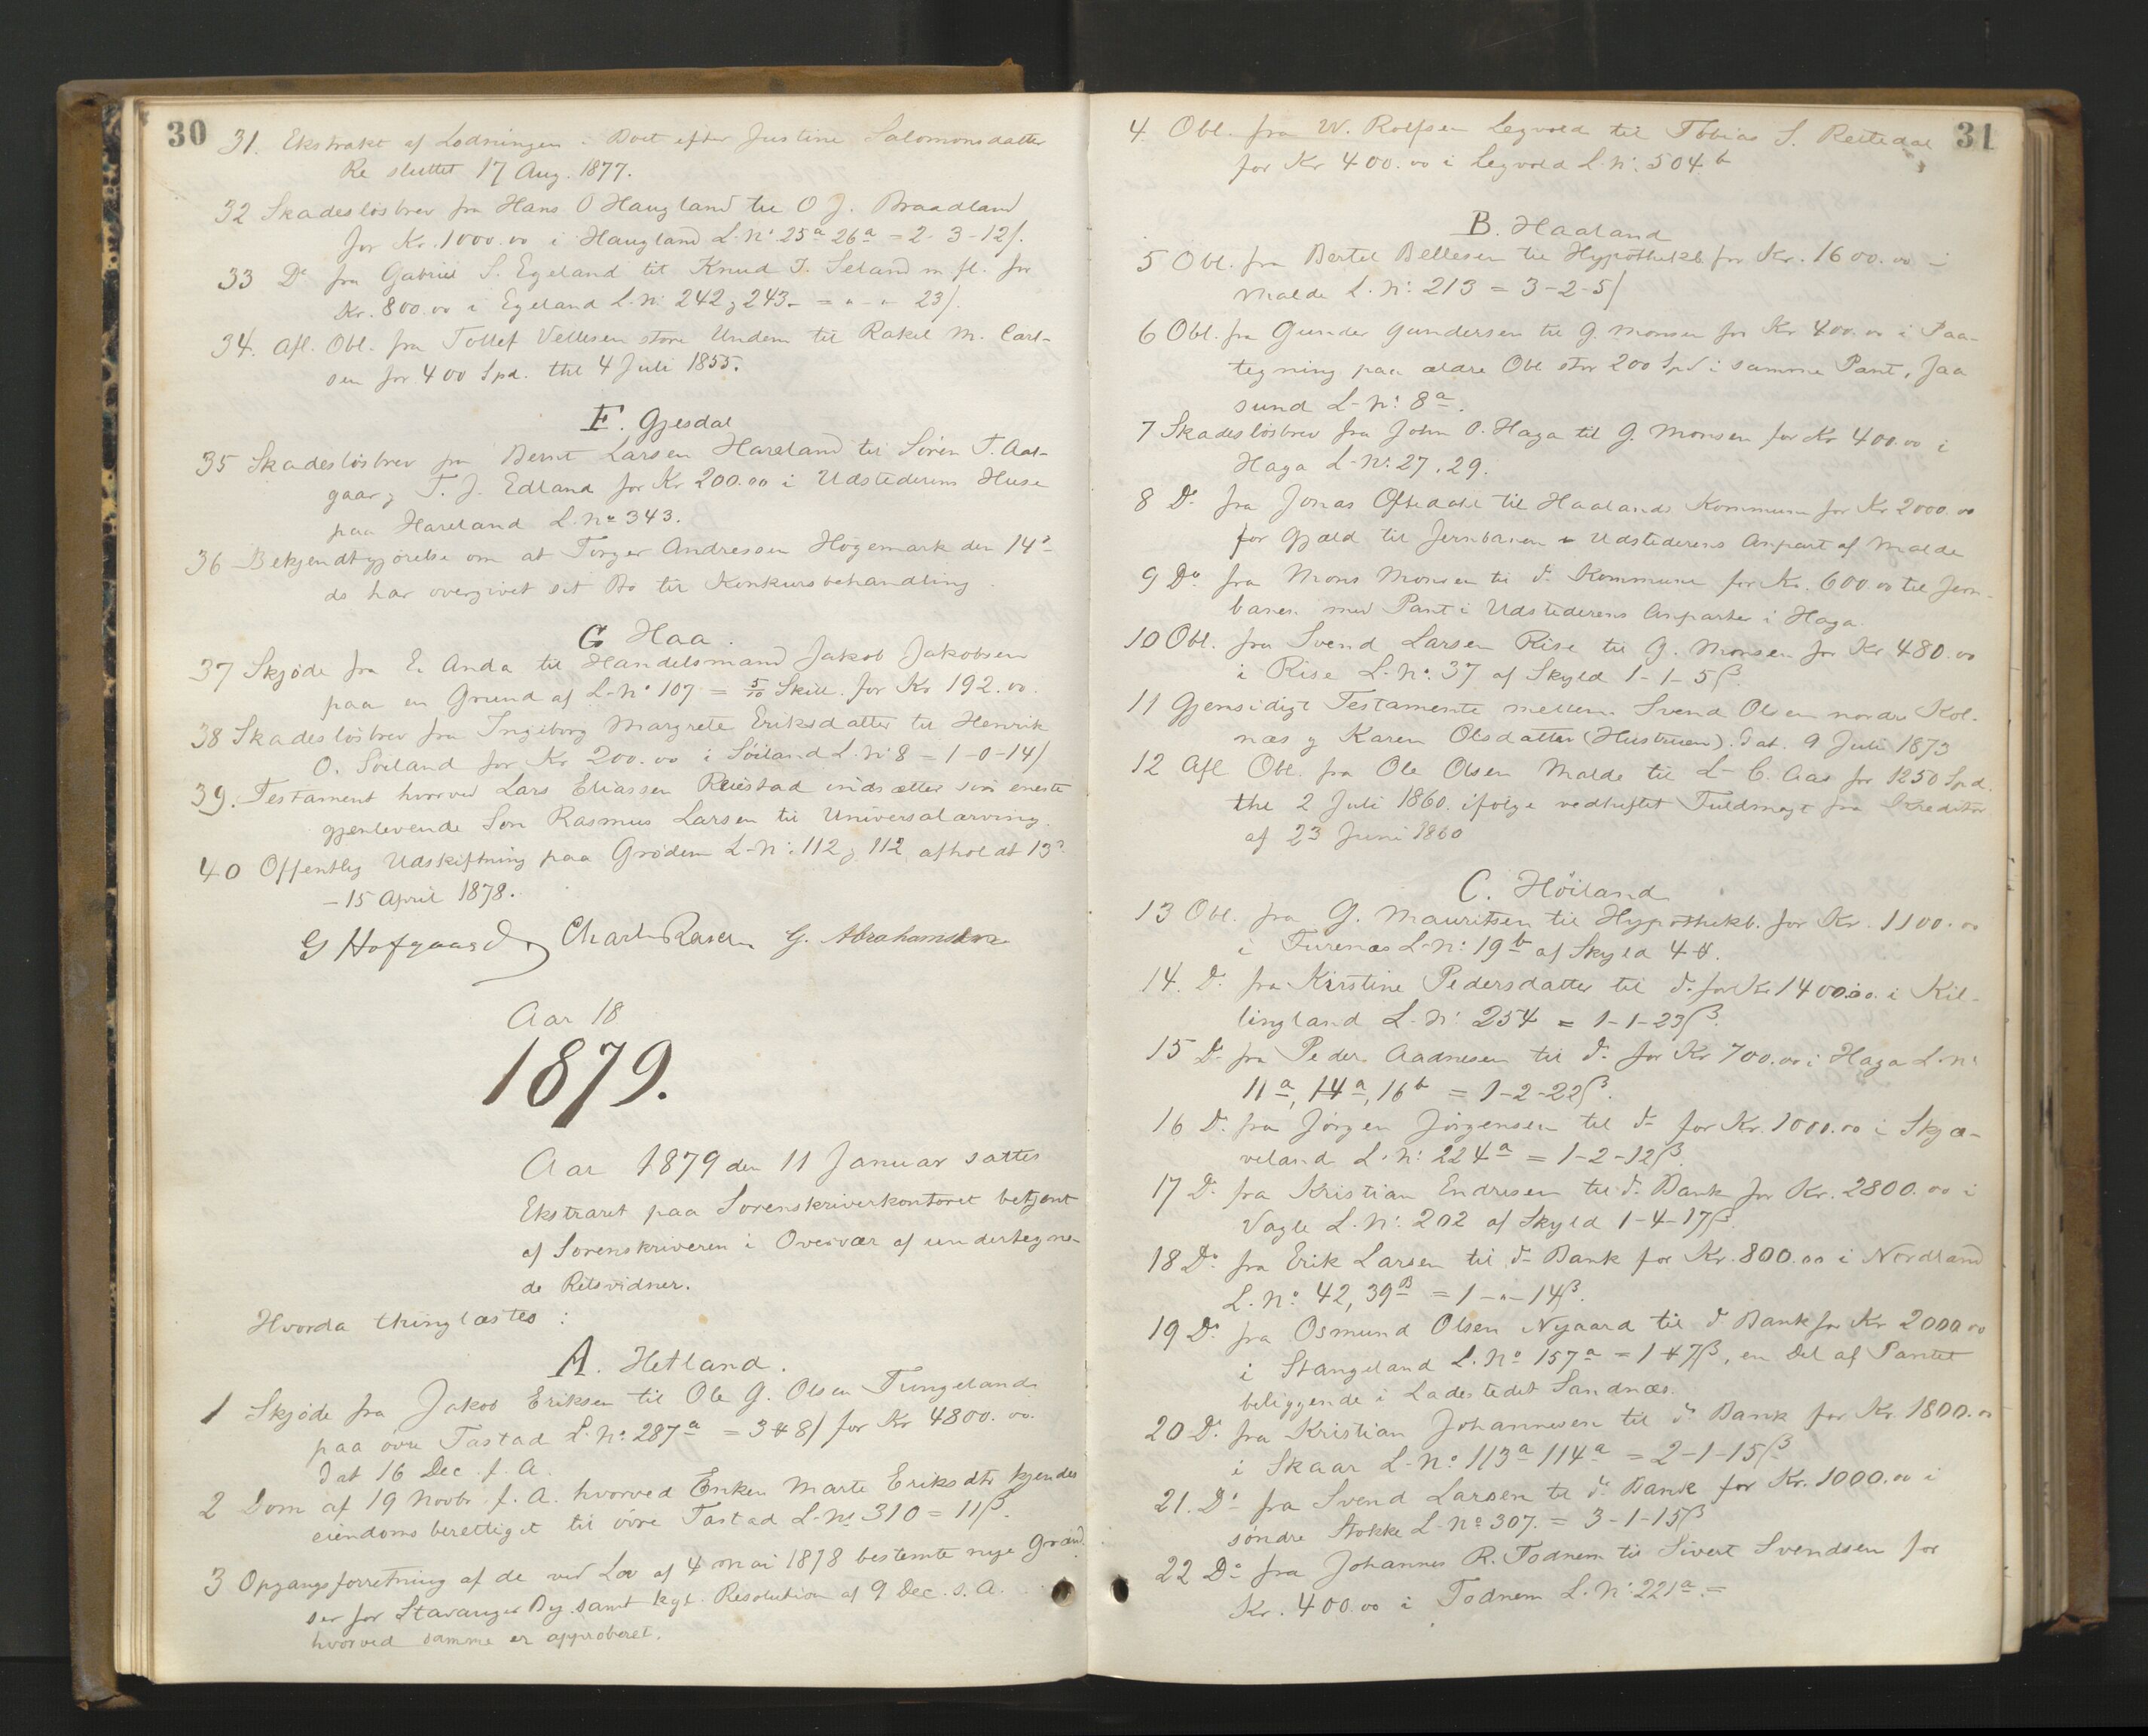 30
31. Ekstrakt af Lodningen i Boet efter Justine Salomonsdatter
Re sluttet 17 Aug. 1877.
32 Skadesløsbrev fra Hans O Haugland til O J. Braadland
for Kr. 1000.00 i Haugland L.No 25a 26a = 2-3-12/.
33 Do fra Gabriel S. Egeland til Knud T. Seland m. fl. for
Kr. 800.00 i Egeland L.No 242 & 243 = " - " - 23/.
34. Afl. Obl. fra Tollef Vellesen store Undem til Rakel M. Carl-
sen for 400 Spd. thl 4 Juli 1855.
F. Gjesdal
35 Skadesløsbrev fra Bernt Larsen Hareland til Søren T. Aal-
gaar & T. J. Edland for Kr 200.00 i Udstederens Huse
paa Hareland L.No 343.
36 Bekjendtgjørelse om at Torger Andressen Høgemark den 14de
ds har overgivet sit Bo til Konkursbehandling.
G Haa.
37 Skjøde fra E. Anda til Handelsmand Jakob Jakobsen
paa en Grund af L-No 107 = 5/10 Skill. for Kr 192.00.
38 Skadesløsbrev fra Ingeborg Margrete Eriksdatter til Henrik
O. Søiland for Kr 200.00 i Søiland L.No 8 = 1-0-14/
39. Testament hvorved Lars Eliassen Reiestad indsætter sin eneste
gjenlevende Søn Rasmus Larsen til Universalarving.
40 Offentlig Udskiftning paa Grødem L-No 112 & 112 afholdt 13de
- 15 April 1878.
G Hofgaard. Charl Rasen G. Abrahamsen
Aar 18
1879.
Aar 1879 den 11 Januar sattes
Ekstraret paa Sorenskriverkontoret betjent
af Sorenskriveren i Overvær af undertegne-
de Retsvidner.
Hvorda thinglæstes:
A. Hetland.
1 Skjøde fra Jakob Eriksen til Ole G. Olsen Tungeland
paa øvre Tastad L.No 287a = 3 # 8/ for Kr 4800.00.
dat 16 Dec. f. A.
2 Dom af 19 Novbr. f. A. hvorved Enken Marte Eriksdtr kjendes
eiendomsberettiget til øvre Tastad L-No 310 = 11ß.
3 Opgangsforretning af de ved Lov af 4 Mai 1878 bestemte nye Grænd-
ser for Stavanger By samt kgl. Resolution af 9 Dec. s. A.
hvorved samme er approberet.
31
4. Obl. fra W. Rolfsen Legvold til Tobias S. Rettedal
for Kr 400.00 i Legvold L.No: 504b
B. Haaland
5 Obl. fra Bertel Bellesen til Hypothekb. for Kr. 1600.00 i
Malde L.No: 213 = 3-2-5/
6 Obl. fra Gunder Gundersen til G. Monsen for Kr 400.00 i Paa-
tegning paa ældre Obl stor 200 Spd i samme Pant, Jaa
sund L-No: 8a.
7 Skadesløsbrev fra John O. Haga til G. Monsen for Kr 400.00 i
Haga L-No: 27, 29.
8 Do fra Jonas Oftedahl til Haalands Kommune for Kr 2000.00
for Gjæld til Jernbanen i Udstederens Anpart af Malde
9 Do fra Mons Monsen til do Kommune for Kr. 600.00 til Jern-
banen med Pant i Udstederens Anparter i Haga.
10 Obl. fra Svend Larsen Rise til G. Monsen for Kr 480.00
i Rise L-No: 37 af Skyld 1-1-5ß.
11 Gjensidigt Testamente mellem Svend Olsen nordre Kol-
næs & Karen Olsdatter (Hustruen). Dat. 9 Juli 1873
12 Afl Obl. fra Ole Olsen Malde til L. C. Aas for 1250 Spd.
thl 2 Juli 1860. ifølge vedheftet Fuldmagt fra Kreditor
af 23 Juni 1860
C. Høiland
13 Obl. fra G. Mauritsen til Hypothekb. for Kr. 1100.00
i Furenæs L-No: 19b af Skyld 4 #.
14. Do fra Kirstine Pedersdatter til do for Kr 1400.00. i Kil-
lingland L-No: 254 = 1-1-23ß.
15 Do fra Peder Aadnesen til do for Kr 700.00 i Haga L-No
11a, 14a, 16b = 1-2-22ß.
16 Do fra Jörgen Jörgensen til do for Kr. 1000.00 i Skjæ-
veland L-No: 224a = 1-2-12ß.
17 Do fra Kristian Endresen til do Bank for Kr. 2800.00 i
Vagle L.No: 202 af Skyld 1-4-17ß.
18 Do fra Erik Larsen til do Bank for Kr. 800.00 i Nordland
L.No: 42, 39B = 1-"-14ß.
19 Do fra Osmund Olsen Nygaard til do Bank for Kr 2000.00
i Stangeland L.No 157a = 1 # 7ß, en Del af Pantet
beliggende i Ladestedet Sandnæs.
20 Do fra Kristian Johannesen til do Bank for Kr. 1800.00
i Skaar L-No: 113a 114a = 2-1-15ß
21. Do fra Svend Larsen til do Bank for Kr. 1000.00 i
søndre Stokke L-No 307. = 3-1-15ß
22 Do fra Johannes R. Todnem til Sivert Svendsen for
Kr. 400.00 i Todnem L.No: 221a. =